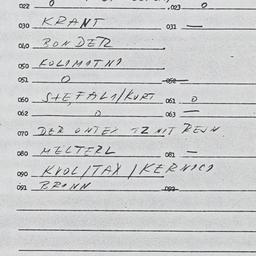 022 0 023 0
030 KRANT 031 —
040 BONDER
050 KOLOMOTNO
051 0 052
060 STEFALI/KURT 061 0
062 0 063 —
070 DER UNTEX
080 MELTERL 081 —
090 KVOL/TAX/KERNOCO
091 BRONN 092